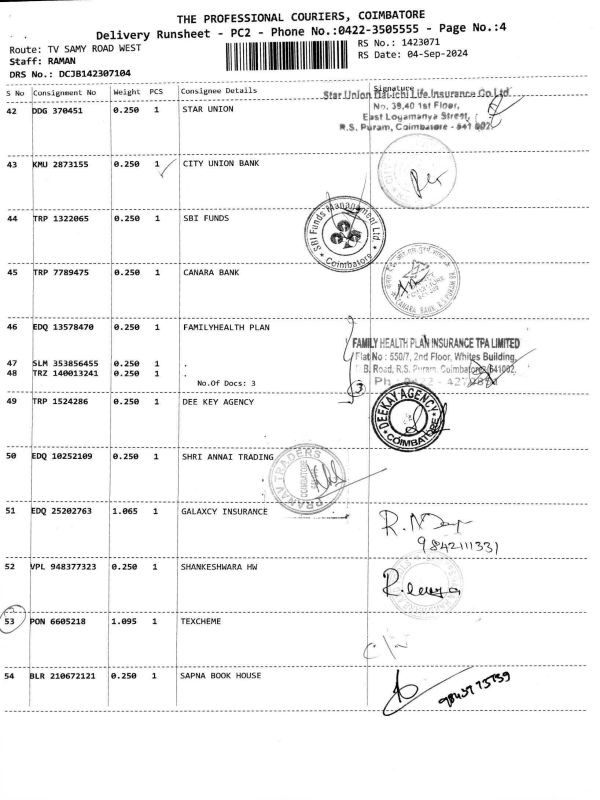 THE PROFESSIONAL COURIERS, COIMBATORE
Delivery Runsheet - PC2 - Phone No.:0422-3505555 - Page No.:4
Route: TV SAMY ROAD WEST
RS No.: 1423071
Staff: RAMAN
RS Date: 04-Sep-2024
DRS No.: DCJB142307104
S No Consignment No Weight PCS Consignee Details Signature
Star Union Dai-ichi Life Insurance Co.Ltd
42 DDG 370451 0.250 1 STAR UNION
No. 39,40 1st Floor,
East Logamanya Street,
R.S. Puram, Coimbatore - 641 002.
43 KMU 2873155 0.250 1 CITY UNION BANK
44 TRP 1322065 0.250 1 SBI FUNDS
SBI Funds Management Ltd.
Coimbatore
45 TRP 7789475 0.250 1 CANARA BANK
CANARA BANK, R.S.PURAM
46 EDQ 13578470 0.250 1 FAMILYHEALTH PLAN
FAMILY HEALTH PLAN INSURANCE TPA LIMITED
Flat No : 550/7, 2nd Floor, Whites Building,
47 SLM 353856455 0.250 1 .
B. Road, R.S. Puram, Coimbatore/641002.
48 TRZ 140013241 0.250 1 .
No.Of Docs: 3
3
49 TRP 1524286 0.250 1 DEE KEY AGENCY
DEEKAY AGENCY
COIMBATORE
50 EDQ 10252109 0.250 1 SHRI ANNAI TRADING
PRANAV TRADERS
COIMBATORE
51 EDQ 25202763 1.065 1 GALAXCY INSURANCE
9842111331
52 VPL 948377323 0.250 1 SHANKESHWARA HW
53 PON 6605218 1.095 1 TEXCHEME
54 BLR 210672121 0.250 1 SAPNA BOOK HOUSE